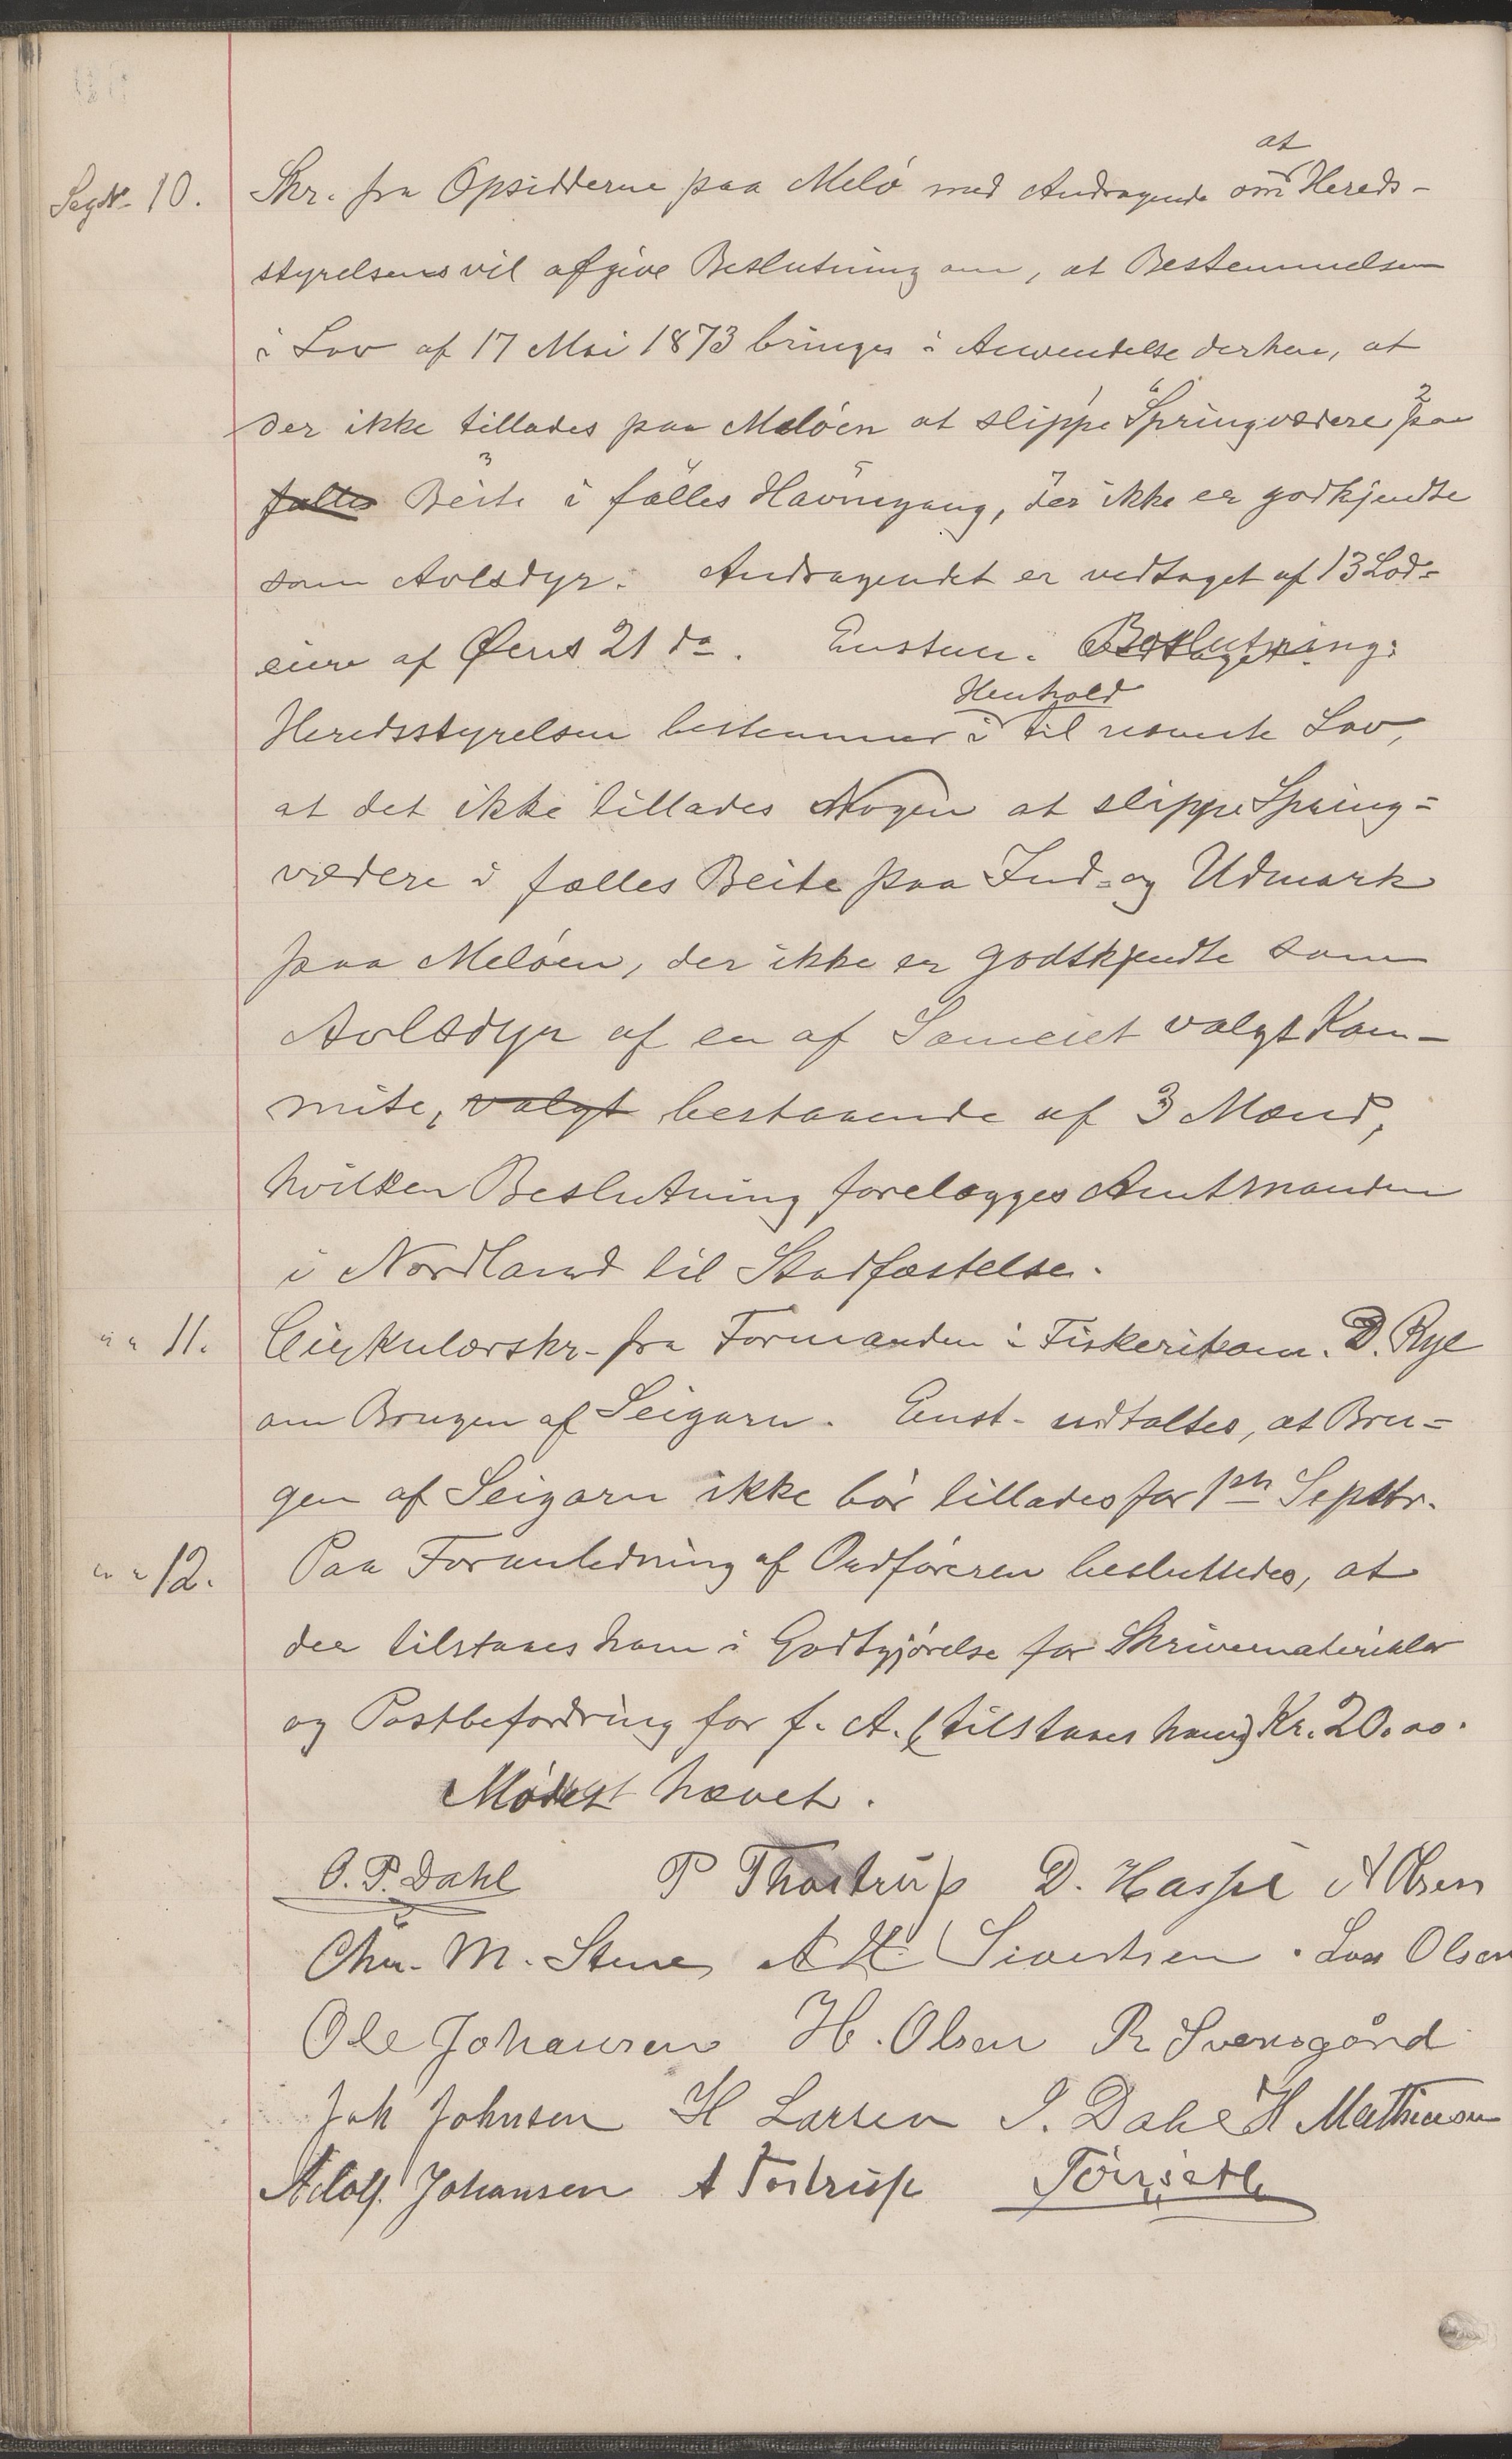 Sag N. 10. Skr. fra Opsidderne paa Melö med Andragende om at Hereds-
styrelsens vil afgive Beslutning om, at Bestemmelsen
i Lov af 17 Mai 1873 bringes i Anvendelse derhen, at
der ikke tillades paa Melöen at slippe Springvædere paa
fælles Beite i fælles Havnegang, der ikke er godkjendte
som Avlsdyr. Andragendet er vedtaget af 13 Lod=
eiere af Øens 21 do. Enstem. Beslutning:
Heredsstyrelsen bestemmer i Henhold til nævnte Lov,
at det ikke tillades Nogen at slippe Spring=
vædere i fælles Beite paa Ind- og Udmark
paa Melöen, der ikke er godtkjendte som
Avlsdyr af en af Sameiet valgt Kom-
mite, valgt bestaaende af 3 Mænd,
hvilken Beslutning forelægges Amtmanden
i Nordland til Stadfæstelse.
" " 11. Cirkulærskr. fra Formanden i Fiskerikom. D. Rye
om Brugen af Seigarn. Enst. udtaltes, at Bru=
gen af Seigarn ikke bör tillades før 1ste Septbr.
" " 12. Paa Foranledning af Ordföreren besluttedes, at
der tilstaaes ham i Godtgjörelse for Skrivematerialer
og Postbefordring for f. A. (tilstaaes ham) Kr. 20.00.
Mödet hævet.
O. P. Dahl P Thostrup D. Haspe A Olsen
Chr. M. Stene A H Sivertsen. Olsen
Ole Johansen H. Olsen P. Svensgård
Joh Johnsen H Larsen I. Dahl H Mathisen
Adolf Johansen A Tostrup